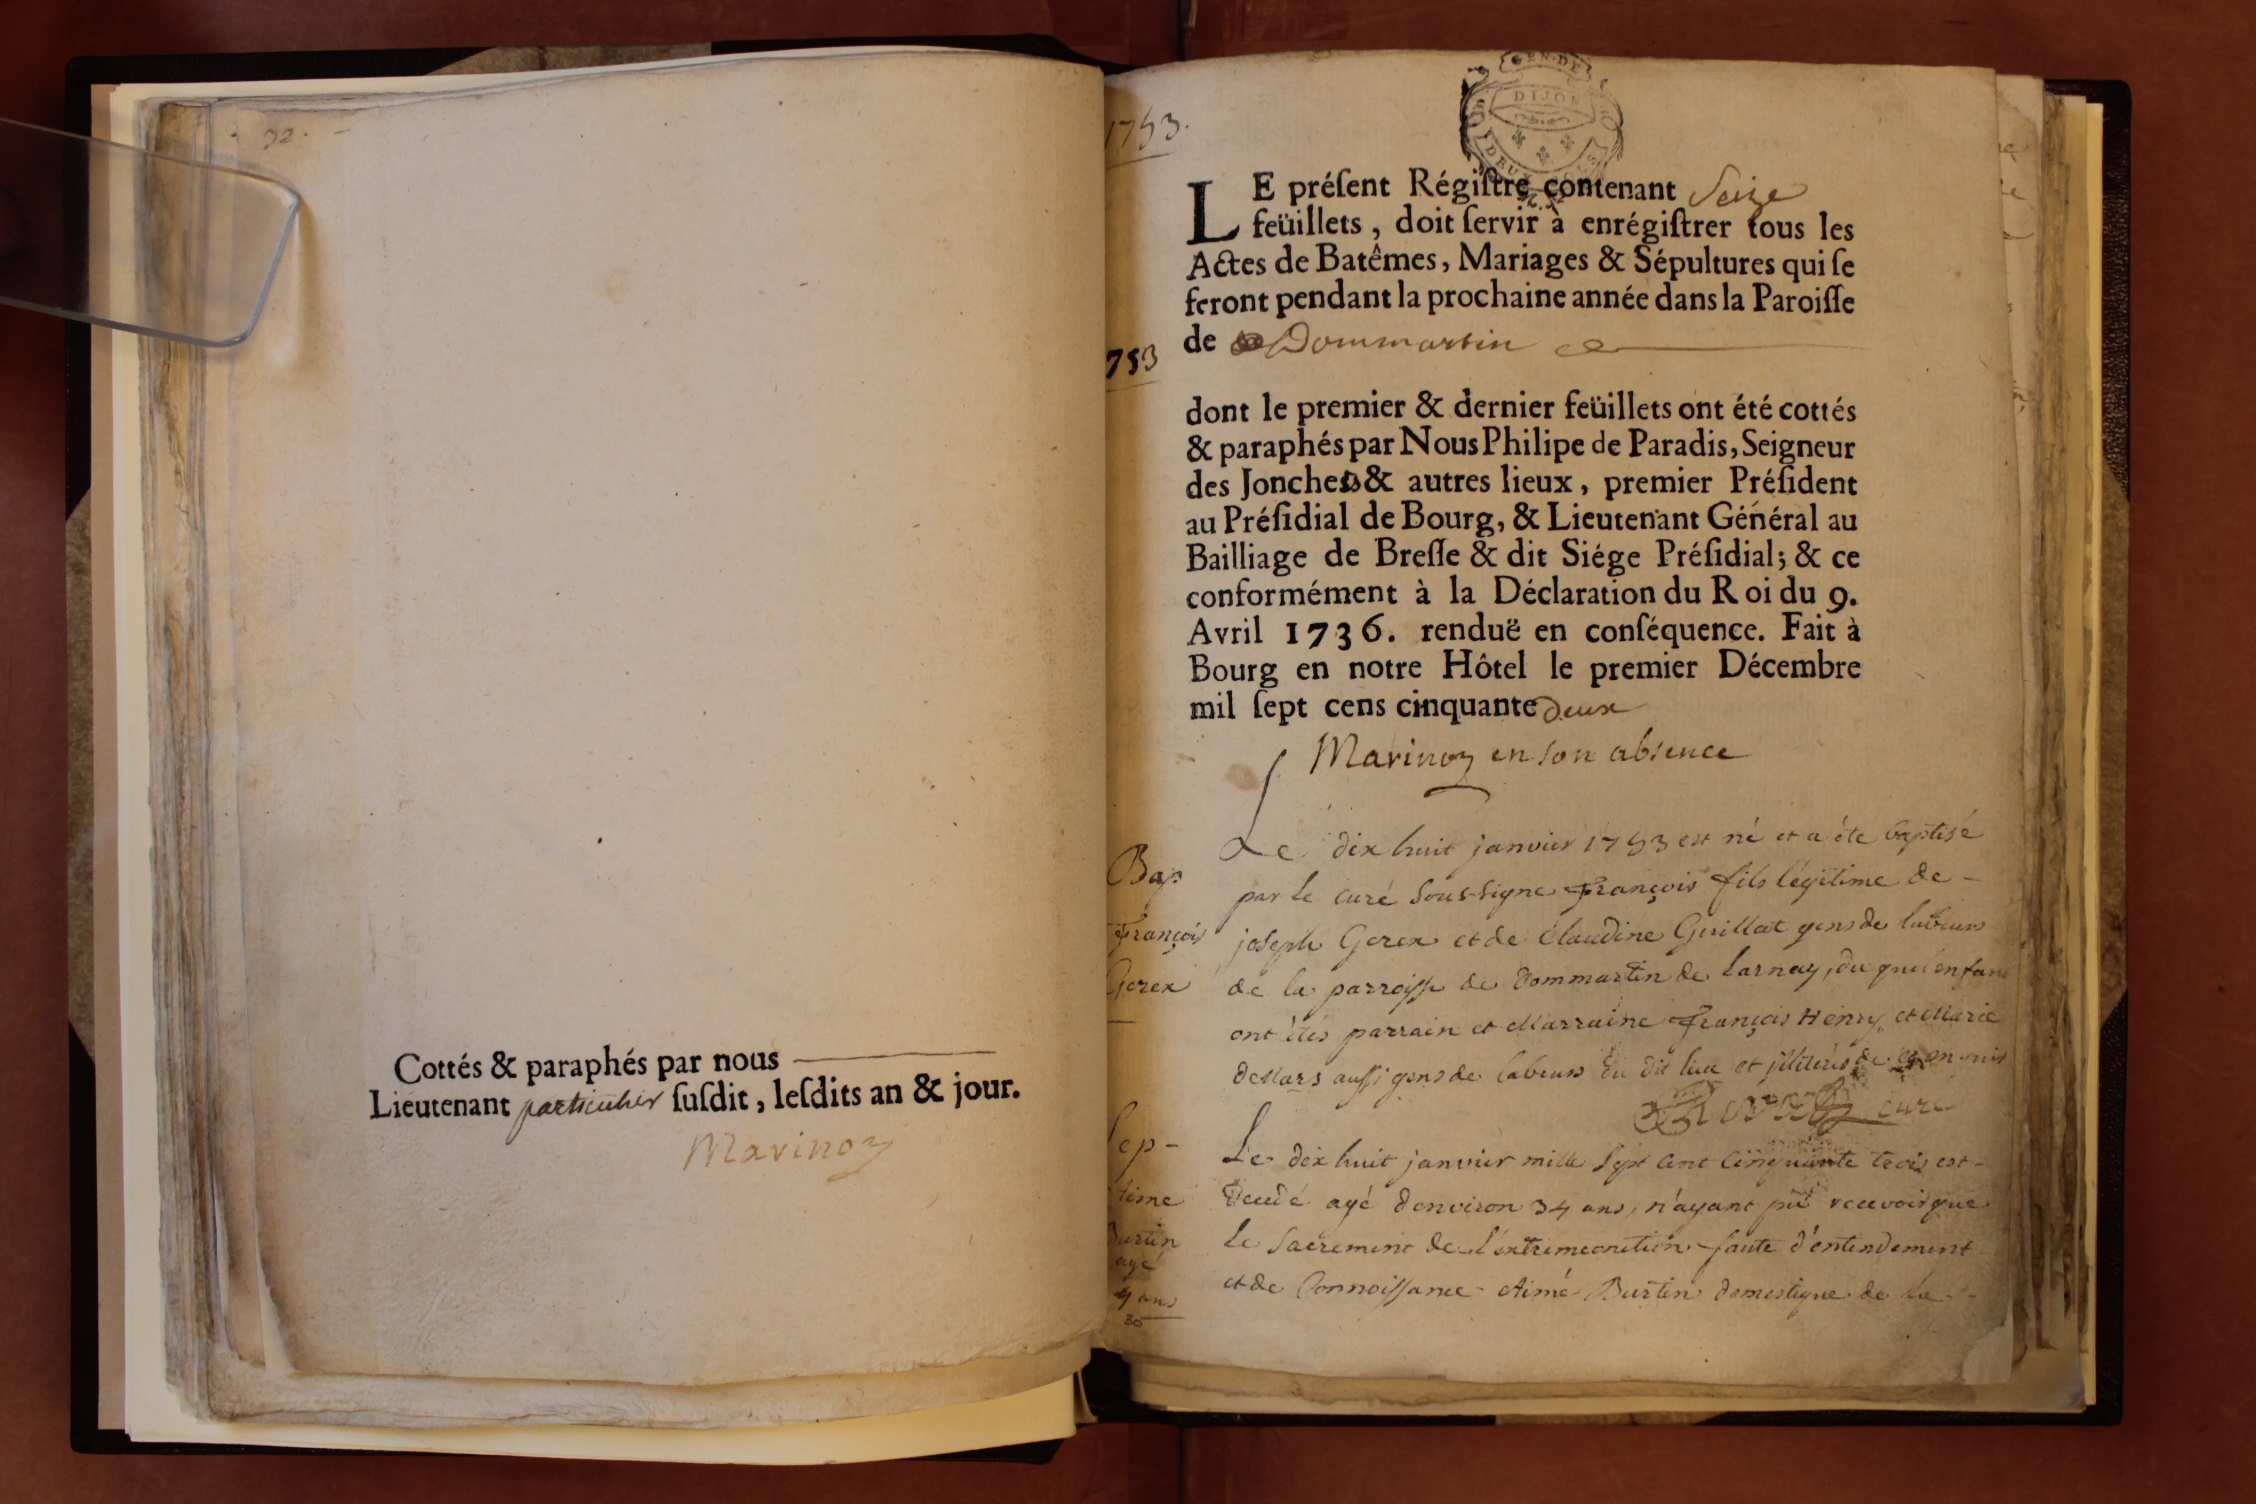 32.
Cottés & paraphés par nous
Lieutenant particulier susdit, lesdits an & jour.
Marinon
1753.
GEN·DE
DIJON
DEUX
LE présent Régistre contenant Seize
feüillets, doit servir à enrégistrer tous les
Actes de Batêmes, Mariages & Sépultures qui se
feront pendant la prochaine année dans la Paroisse
de Dommartin
753
dont le premier & dernier feüillets ont été cottés
& paraphés par Nous Philipe de Paradis, Seigneur
des Jonches & autres lieux, premier Président
au Présidial de Bourg, & Lieutenant Général au
Bailliage de Bresse & dit Siége Présidial; & ce
conformément à la Déclaration du Roi du 9.
Avril 1736. renduë en conséquence. Fait à
Bourg en notre Hôtel le premier Décembre
mil sept cens cinquante deux
Marinon en son absence
Bap
François
Gerex
Le dix huit janvier 1753 est né et a éte baptisé
par le curé Sous-signe François fils légitime de
joseph Gerex et de Claudine Guillat gens de labeurs
de la parroisse de Dommartin de Larnay, du quel enfant
ont étés parrain et Marraine François Henry et Marie
deMars aussi gens de labeurs du dit lieu et jllitérés de
curé
Sep-
Aimé
Burtin
agé
4 ans
30
Le dix huit janvier mille Sept Cent Cinquante trois est
Decedé agé d'environ 34 ans, n'ayant pû recevoir que
le Sacrement de l'extremeonction faute d'entendement
et de Connoissance Aimé Burtin domestique de la